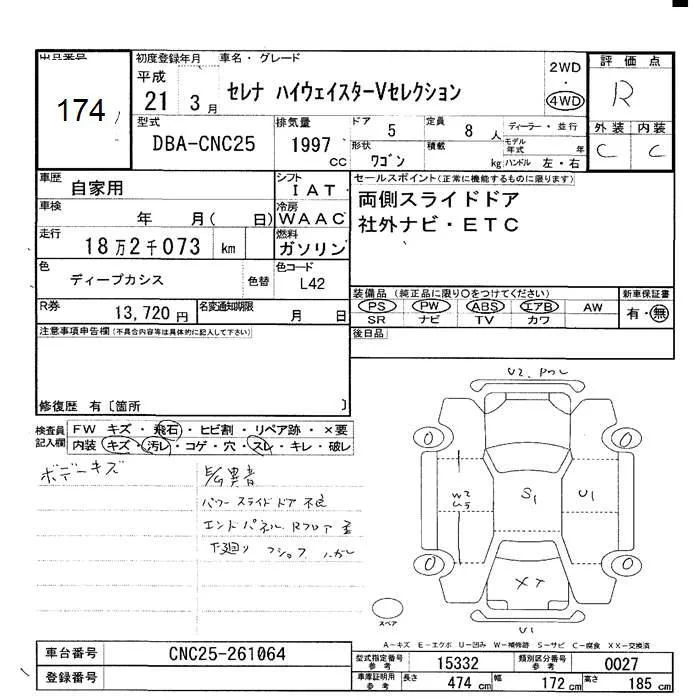 出品番号
174
初度登録年月
平成
21 3月
車名・グレード
セレナ ハイウェイスターVセレクション
2WD
・
4WD
評価点
R
外装 内装
C C
型式
DBA-CNC25
排気量
1997 CC
ドア
5
定員
8 人
形状
ワゴン
積載
kg
ディーラー・並行
モデル年式 年
ハンドル 左・右
車歴
自家用
シフト
IAT
車検
年 月( 日)
冷房
WAAC
走行
18万2千073 km
燃料
ガソリン
色
ディープカシス
色替
色コード
L42
R券
13,720円
名変通知期限
月 日
セールスポイント(正常に機能するものに限ります)
両側スライドドア
社外ナビ・ETC
装備品 (純正品に限り○をつけてください)
PS PW ABS エアB AW
SR ナビ TV カワ
新車保証書
有・無
後日品
注意事項申告欄(不具合内容等は具体的に記入して下さい)
修復歴 有〔箇所 〕
検査員記入欄
FW キズ・飛石・ヒビ割・リペア跡・×要
内装 キズ・汚レ・コゲ・穴・スレ・キレ・破レ
ボデーキズ
異音
パワースライドドア不良
エンドパネル Rフロア
下廻り
U2.
0 0
W2
S1
U1
0 0
XT
U1
スペア
A-キズ E-エクボ U-凹み W-補修跡 S-サビ C-腐食 XX-交換済
車台番号
CNC25-261064
登録番号
型式指定番号 参考
15332
類別区分番号 参考
0027
車庫証明用 参考
長さ 474 cm 幅 172 cm 高さ 185 cm